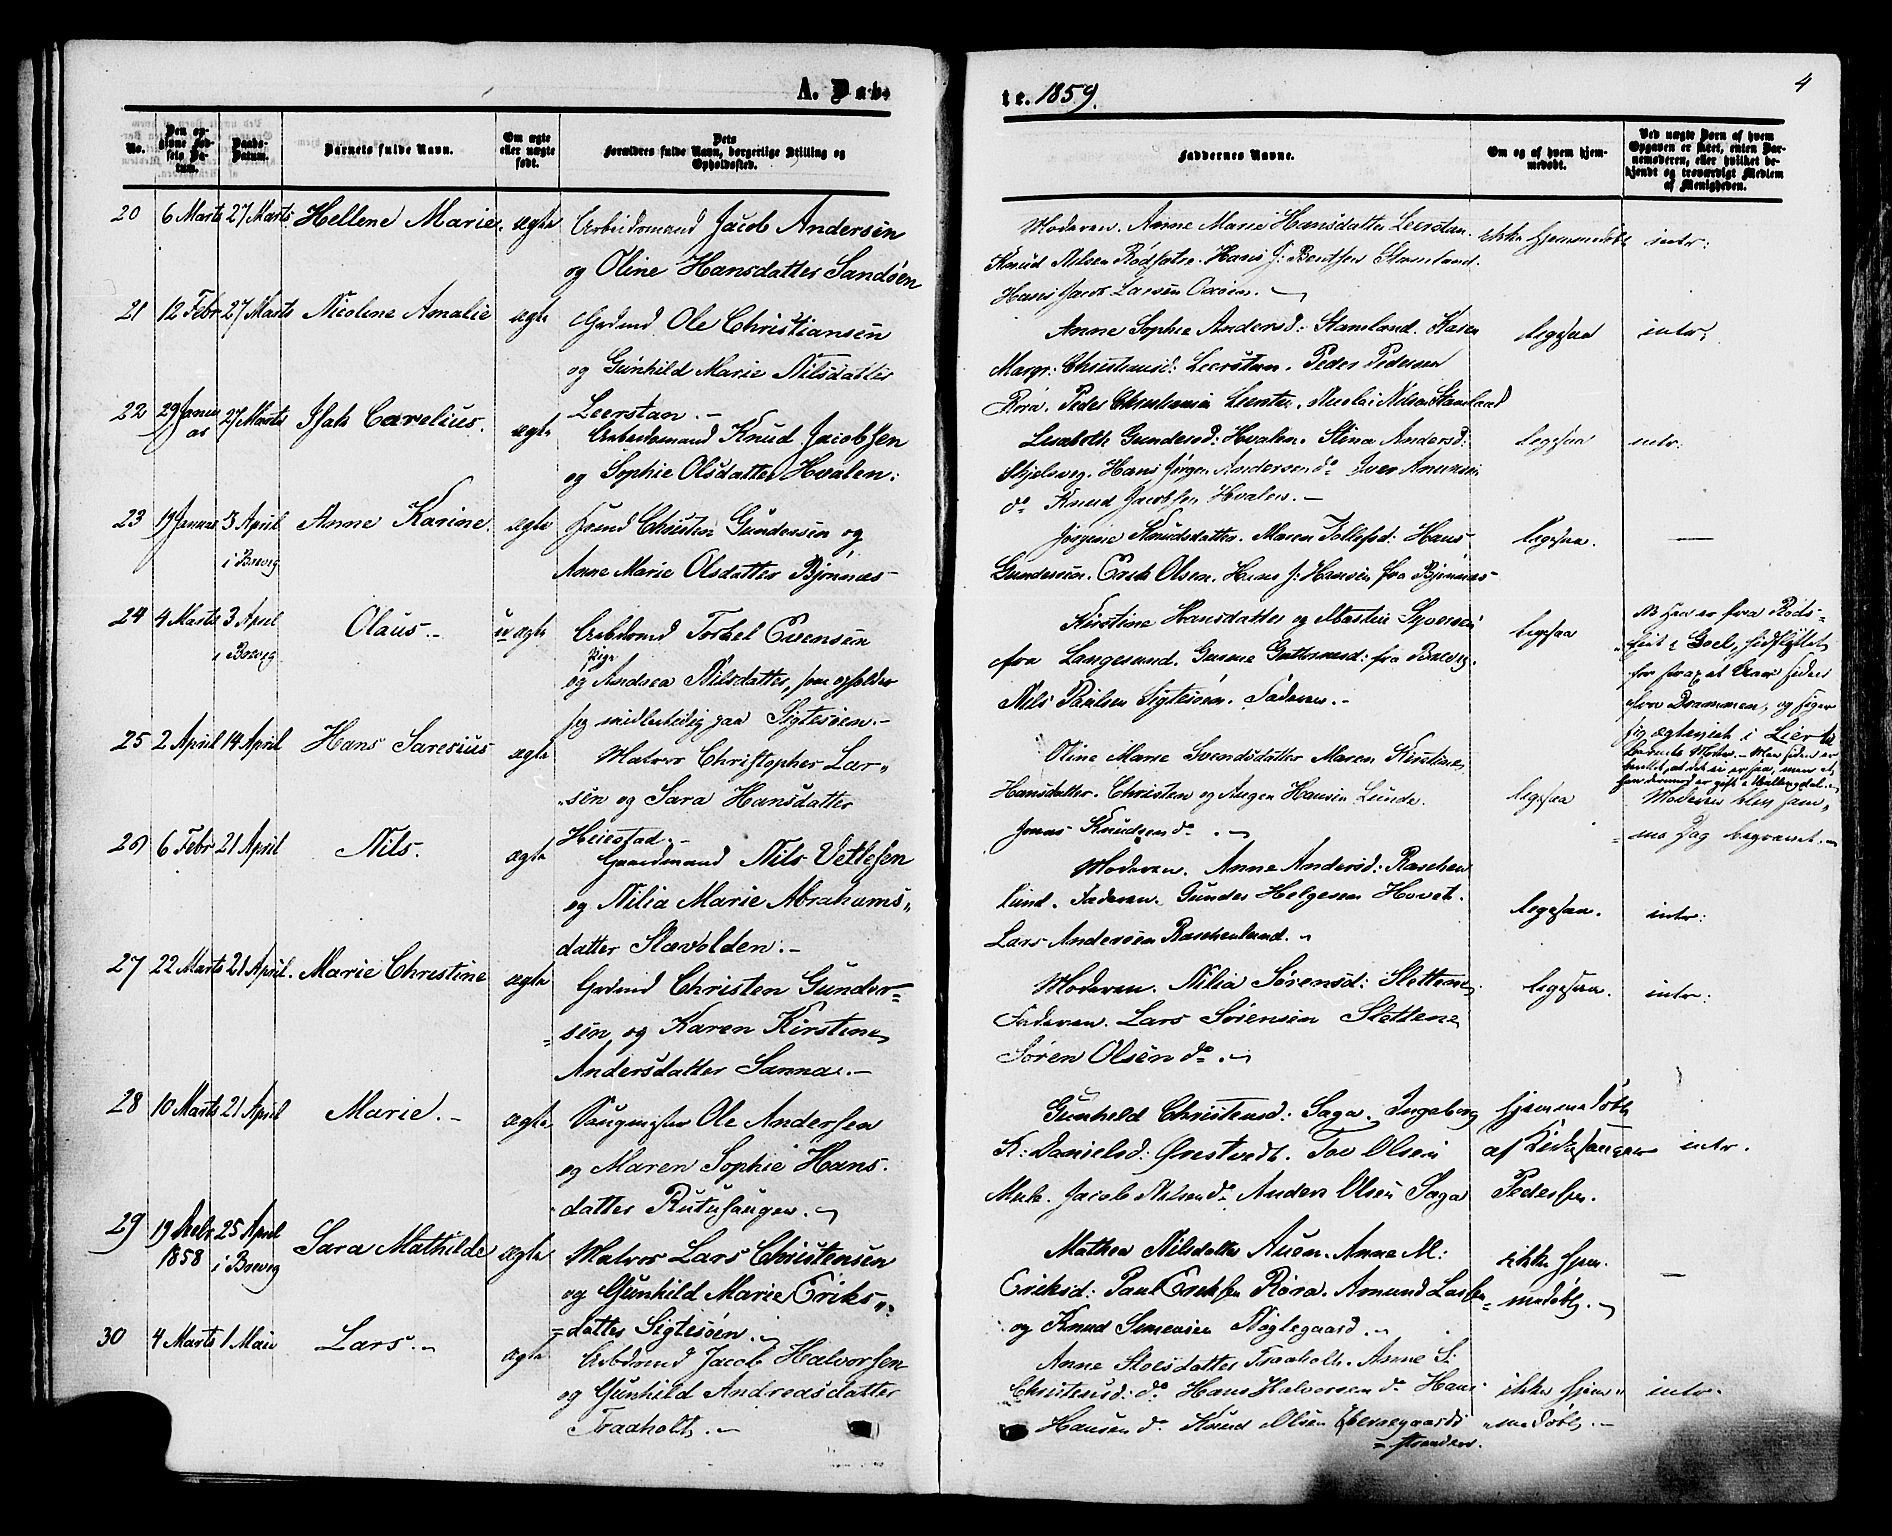 A. Dab-
te. 1859.
4
No.
Den opgivne Fødsels Datum.
Daabs-Datum.
Barnets fulde Navn.
Om ægte eller uægte født.
Dets Forældres fulde Navn, borgerlige Stilling og Opholdssted.
Faddernes Navne.
Om og af hvem hjemmedøbt.
Ved uægte Barn af hvem Opgaven er skeet, enten Barnemoderen, eller hvilket bekjendt og troværdigt Medlem af Menigheden.
20 6 Marts 27 Marts Hellene Marie. ægte Arbeidsmand Jacob Andersen
og Oline Hansdatter Sandøen
Moderen. Anne Marie Hansdatter Leerstan.
Knud Nilsen Rødsætre. Hans J: Bentsen Stamland.
Hans Jacob Larsen
ikke hjemmedøbt intr:
21 12 Febr 27 Marts Nicoline Amalie ægte Gadmd Ole Christiansen
og Gunhild Marie Nilsdatter
Leerstan.-
Anne Sophie Andersd: Stamland. Karen
Margr: Christiansd: Leerstan. Peder Pedersen
Røra. Peder Christiansen Leerstan. Nicolai Nilsen Stamland
ligesaa intr:
22 29 Januar 27 Marts Isak Carelius. ægte Arbeidsmand Knud Jacobsen
og Sophie Olsdatter Hvalen:
Lisabeth Gundersd: Hvalen. Stina Andersd:
Skjelsvig. Hans Jørgen Andersen do Iver Amundsen
do Knud Jacobsen Hvalen.-
ligesaa intr:
23 19 Januar 3 April i Brevig Anne Karine. ægte Christen Gundersen og
Anne Marie Olsdatter Bjønnæs-
Jørgine Knudsdatter. Maren Tollefsd: Hans
Gundersen. Erik Olsen. Hans J: Hansen fra Bjønnæs-
ligesaa. —
24 4 Marts 3 April i Brevig Olaus.- uægte Arbdsmd Torkel Evensen
pige
og Andrea Nilsdatter, som opholder
sig midlertidig paa Sigtesøen.-
Kirstine Hansdatter og Mastin Syversen
fra Langesund. Gunne Guttormsd: fra Brevig.
Nils Paulsen Sigtesøen. Faderen.-
ligesaa
NB Han er fra
for strax et Aar siden
fra Drammen, og siger
sig ægteviet i Lier
25 2 April 14 April Hans Saresius ægte Matros Christopher Lar-
sen og Sara Hansdatter
Heiestad.-
Oline Marie Svendsdatter Maren Kirstine
Hansdatter. Christen og Augen Hansen Lunde.
Jonas Knudsen do.
ligesaa
Moderen blev sam-
me Dag begravet.-
26 6 Febr 21 April Nils. ægte Gaardmand Nils Vetlesen
og Nilia Marie Abrahams-
datter Slevolden.-
Moderen. Anne Andersd: Raschen
lund. Faderen. Gunder Helgesen Hovet.
Lars Andersen Raschenlund.
ligesaa. intr:
27 22 Marts 21 April. Marie Christine ægte Gadmd Christen Gunder-
sen og Karen Kirstine
Andersdatter Sanna.-
Moderen. Nilia Sørensd: Slettene
Faderen. Lars Sørensen Slettene
Søren Olsen do.
ligesaa. intr:
28 10 Marts 21 April Marie.- ægte Saugmester Ole Andersen
og Maren Sophie Hans-
datter Rutusaugen.
Gunhild Christensd: Saga. Ingeborg
K: Danielsd: Ørstvedt. Tov Olsen
Mule. Jacob Nilsen do Anders Olsen Saga
hjemmedøbt
af Kirkesanger
Pedersen.
intr.
29 19 Decbr 1858 25 April i Brevig Sara Mathilde ægte Matros Lars Christensen
og Gunhild Marie Eriks-
datter Sigtesøen.
Mathea Nilsdatter Auen. Anne M:
Eriksd: Paul Eriksen Røra. Amund Larsen
og Knud Simensen Nøglegaard.
ikke hjem-
medøbt.
—
30 4 Marts 1 Mai Lars.- ægte Arbdsmd Jacob Halvorsen
og Gunhild Andreasdatter
Traaholt.-
Anne Nilsdatter Traaholt. Anne S:
Christensd: do. Hans Halvorsen do Hans
Hansen do Knud Olsen Herregaards
stranden.
ikke hjem-
medøbt.-
intr.